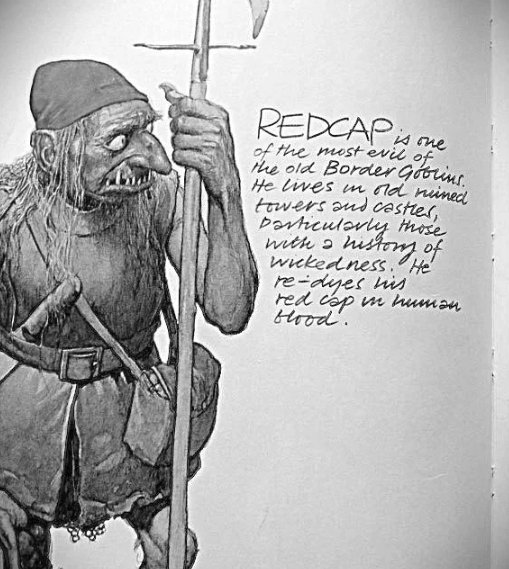 REDCAP is one
of the most evil of
the old Border Goblins.
He lives in old ruined
towers and castles,
particularly those
with a history of
wickedness. He
re-dyes his
red cap in human
blood.